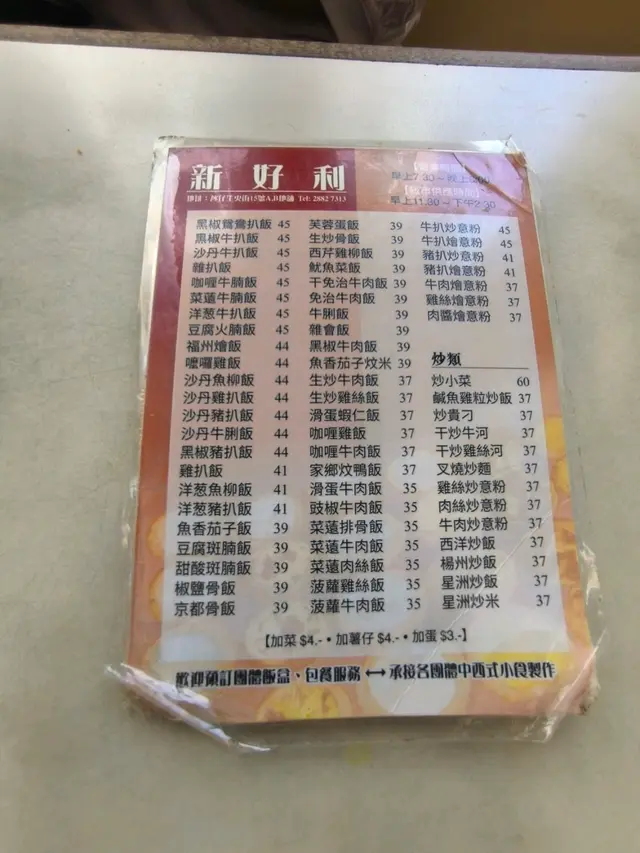 新好利
Tel: 2882 7313
早上11.30～下午2:30
黑椒鴛鴦扒飯 45
黑椒牛扒飯 45
沙丹牛扒飯 45
雜扒飯 45
咖喱牛腩飯 45
菜薳牛腩飯 45
洋葱牛扒飯 45
豆腐火腩飯 45
福州燴飯 44
嚦囉雞飯 44
沙丹魚柳飯 44
沙丹雞扒飯 44
沙丹豬扒飯 44
沙丹牛脷飯 44
黑椒豬扒飯 44
雞扒飯 41
洋葱魚柳飯 41
洋葱豬扒飯 41
魚香茄子飯 39
豆腐斑腩飯 39
甜酸斑腩飯 39
椒鹽骨飯 39
京都骨飯 39
芙蓉蛋飯 39
生炒骨飯 39
西芹雞柳飯 39
魷魚菜飯 39
干免治牛肉飯 39
免治牛肉飯 39
牛脷飯 39
雜會飯 39
黑椒牛肉飯 39
魚香茄子炆米 39
生炒牛肉飯 37
生炒雞絲飯 37
滑蛋蝦仁飯 37
咖喱雞飯 37
咖喱牛肉飯 37
家鄉炆鴨飯 37
滑蛋牛肉飯 35
豉椒牛肉飯 35
菜薳排骨飯 35
菜薳牛肉飯 35
菜薳肉絲飯 35
菠蘿雞絲飯 35
菠蘿牛肉飯 35
牛扒炒意粉 45
牛扒燴意粉 45
豬扒炒意粉 41
豬扒燴意粉 41
牛肉燴意粉 37
雞絲燴意粉 37
肉醬燴意粉 37
炒類
炒小菜 60
鹹魚雞粒炒飯 37
炒貴刁 37
干炒牛河 37
干炒雞絲河 37
叉燒炒麵 37
雞絲炒意粉 37
肉絲炒意粉 37
牛肉炒意粉 37
西洋炒飯 37
楊州炒飯 37
星洲炒飯 37
星洲炒米 37
【加菜 $4.-•加薯仔 $4.-•加蛋 $3.-】
歡迎預訂團體飯盒、包餐服務↔承接各團體中西式小食製作